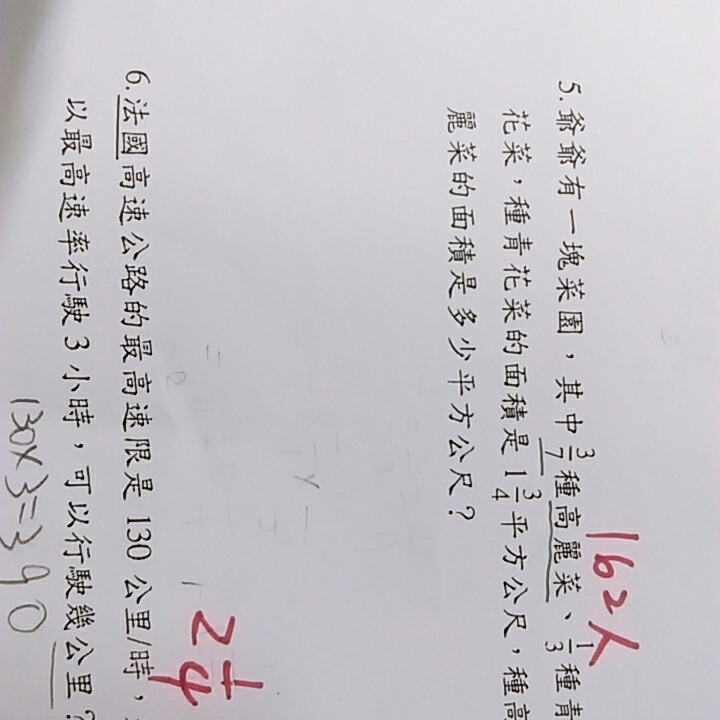 162人
5.爺爺有一塊菜園，其中3/7種高麗菜、1/3種青
花菜，種青花菜的面積是1 3/4平方公尺，種高
麗菜的面積是多少平方公尺？
2 1/4
6.法國高速公路的最高速限是130公里/時，
以最高速率行駛3小時，可以行駛幾公里？
130×3=390